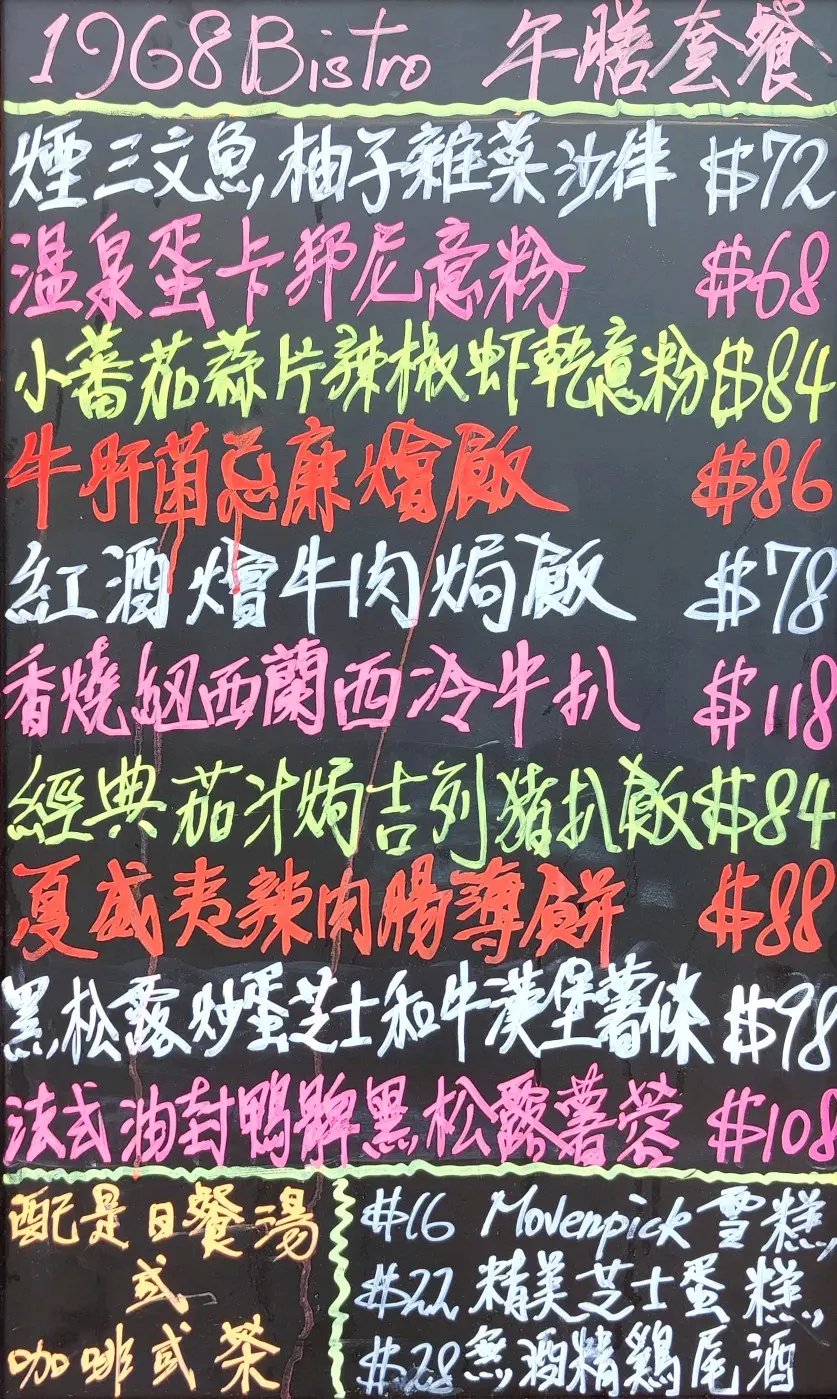 1968 Bistro 午膳套餐
煙三文魚,柚子雜菜沙律 $72
温泉蛋卡邦尼意粉 $68
小蕃茄蒜片辣椒虾乾意粉 $84
牛肝菌忌廉燴飯 $86
紅酒燴牛肉焗飯 $78
香燒紐西蘭西冷牛扒 $118
經典茄汁焗吉列豬扒飯 $84
夏威夷辣肉腸薄餅 $88
黑松露炒蛋芝士和牛漢堡薯條 $98
法式油封鴨髀黑松露薯蓉 $108
配是日餐湯
或
咖啡或茶
$16 Movenpick 雪糕,
$22 精美芝士蛋糕,
$28 無酒精鷄尾酒